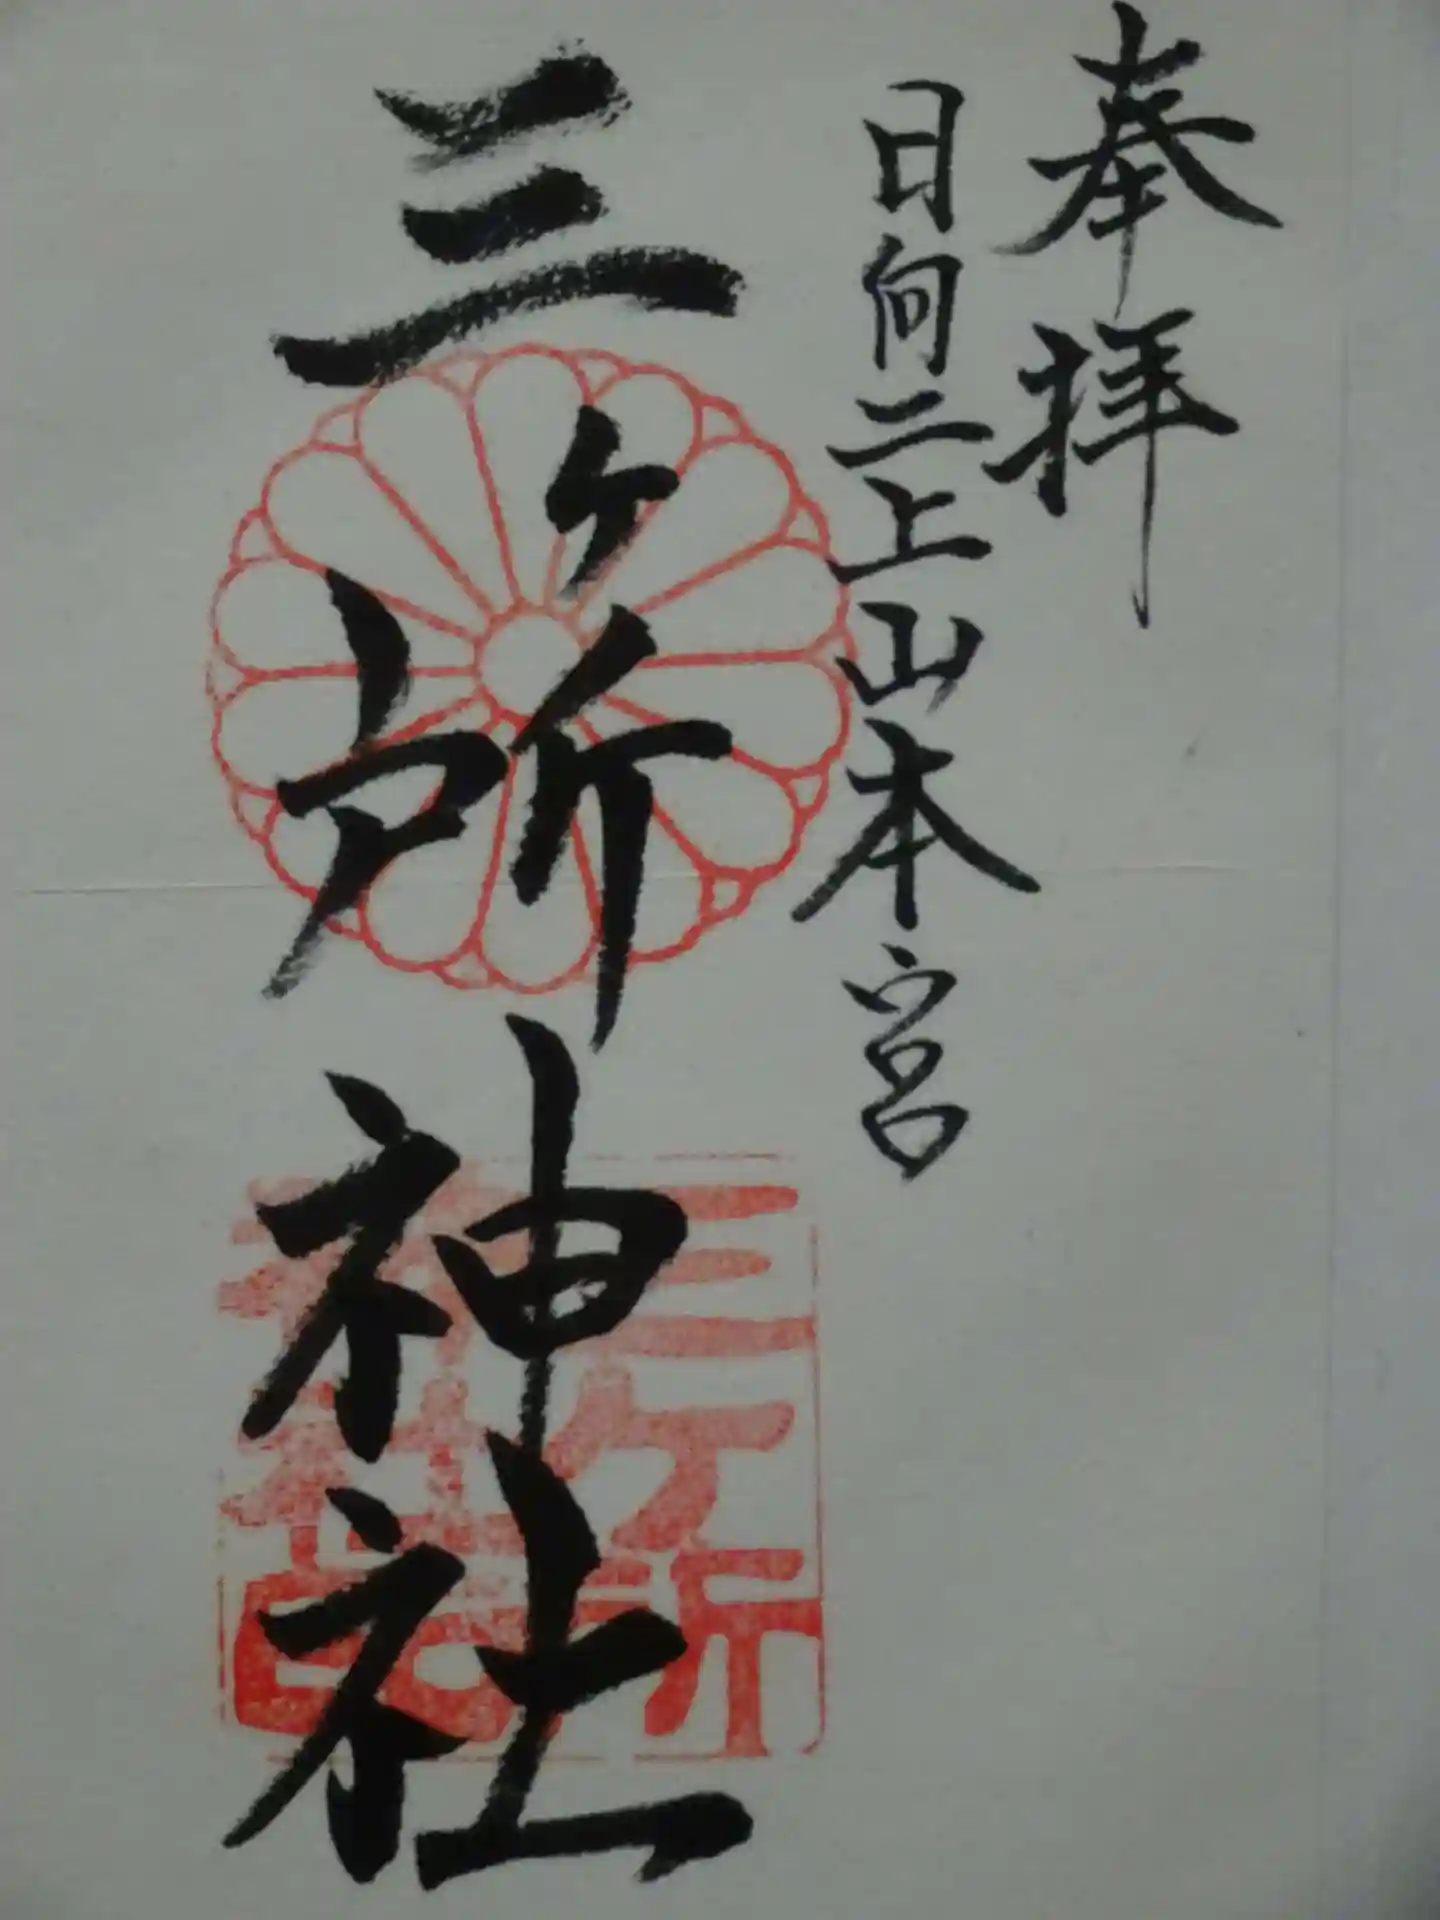 奉拝
日向二上山本宮
三ヶ所神社
三ヶ所
神社